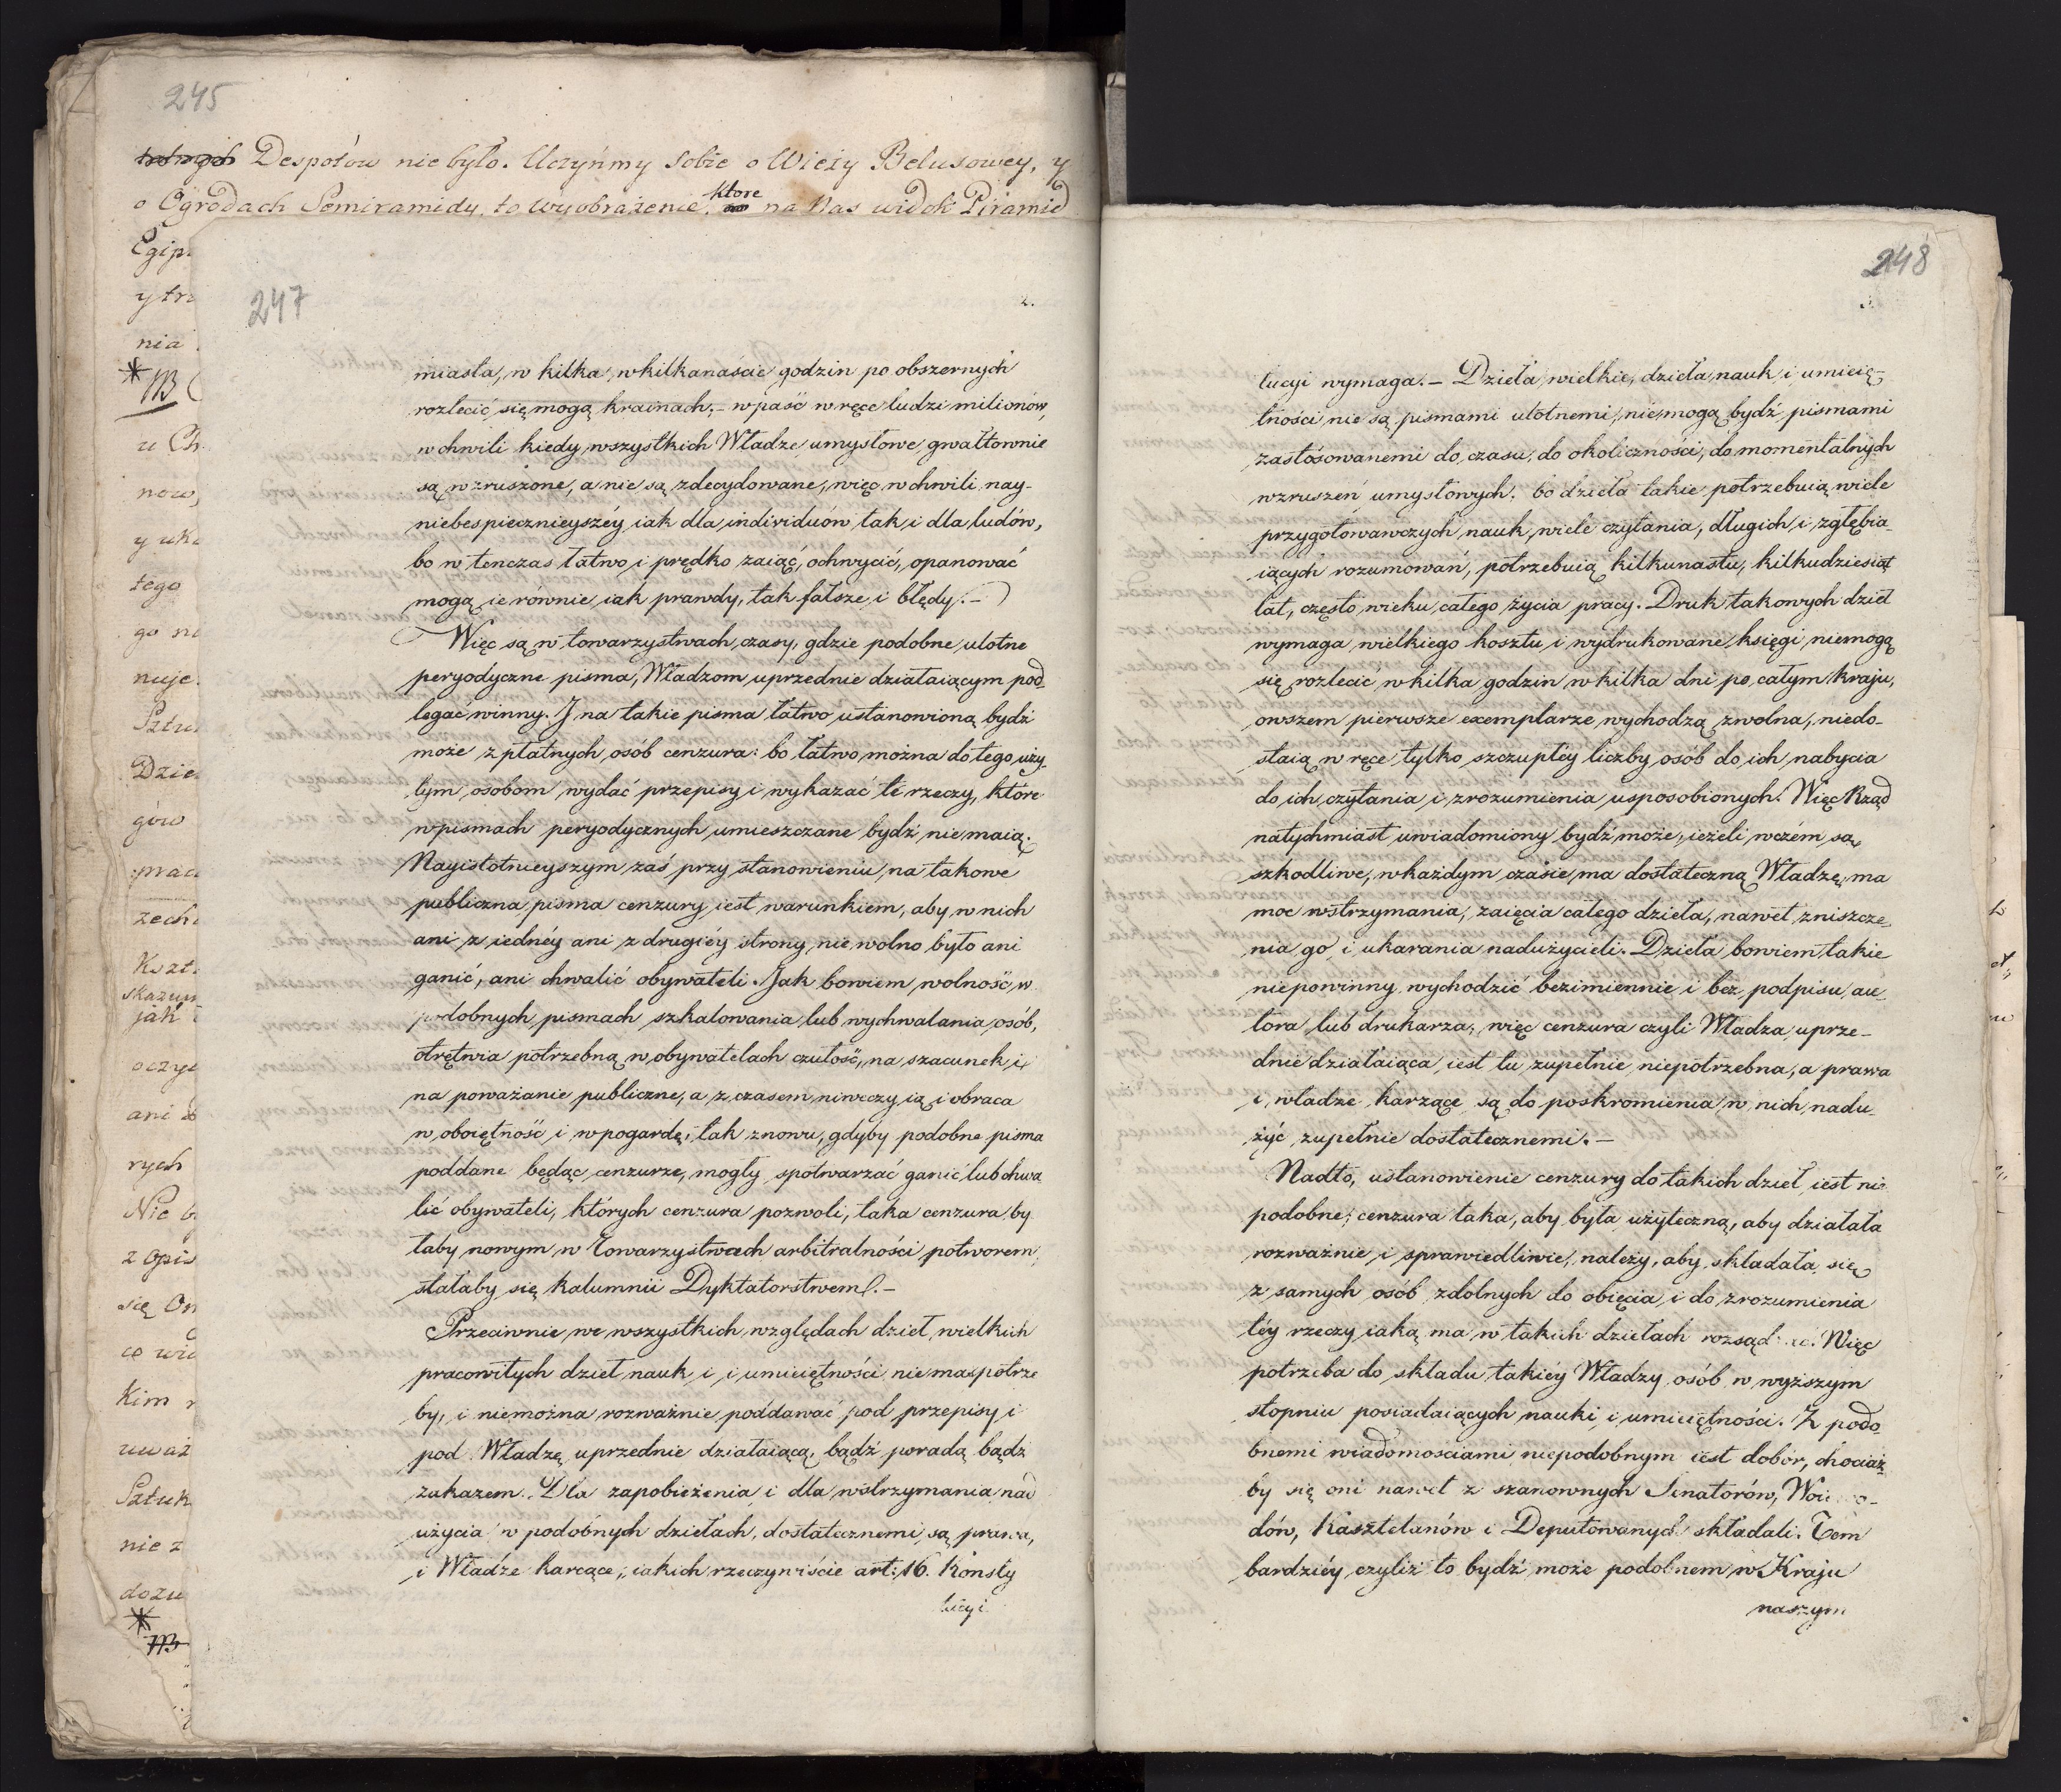 245
Despotów nie było. Uczyńmy sobie o Wieży Belusowey, y
o Ogrodach Semiramidy, to wyobrażenie, ktore na Nas widok Piramid
Egip
y trz
nia
NB
u Ch
now,
y uka
tego
go na
nuje.
Sztu
Dzie
gów
prac
zech
Kszt
skazu
jak
oczy
ani
rych
Nie b
z opis
się On
co wie
Kim
uważ
Sztuk
nie z
dozu
NB
247
2.
miasta, w kilka, w kilkanaście godzin po obszernych
rozlecić się mogą krainach; – wpaść w ręce ludzi milionów,
w chwili kiedy wszystkich Władze umysłowe gwałtownie
są wzruszone, a nie są zdecydowane, więc w chwili nay-
niebespiecznieyszéy iak dla individuów tak i dla ludów,
bo w tenczas łatwo i prędko zaiąć, ochwycić, opanować
mogą ie równie iak prawdy, tak fałsze i błędy. –
Więc są w towarzystwach czasy, gdzie podobne ulotne
peryodyczne pisma, Władzom uprzednie działaiącym pod-
legać winny. I na takie pisma łatwo ustanowioną bydź
może z płatnych osób cenzura: bo łatwo można do tego uży-
tym osobom wydać przepisy i wykazać te rzeczy, które
w pismach peryodycznych umieszczane bydź nie maią.
Nayistotnieyszym zaś przy stanowieniu na takowe
publiczna pisma cenzury iest warunkiem, aby w nich
ani z iednéy ani z drugiéy strony nie wolno było ani
ganić, ani chwalić obywateli. Jak bowiem wolność w
podobnych pismach szkalowania lub wychwalania osób,
otrętwia potrzebną w obywatelach czułość, na szacunek i
na poważanie publiczne, a z czasem niweczy ią i obraca
w oboiętność i w pogardę, tak znowu, gdyby podobne pisma
poddane będąc cenzurze, mogły spotwarzać ganić lub chwa
lić obywateli, których cenzura pozwoli, taka cenzura by
łaby nowym w Towarzystwach arbitralności potworem,
stałaby się kalumnii Dyktatorstwem. –
Przeciwnie we wszystkich względach dzieł wielkich
pracowitych dzieł nauk i i umieiętności nie masz potrze
by, i niemożna rozważnie poddawać pod przepisy i
pod Władzę uprzednie działaiącą, bądź poradą bądź
zakazem. Dla zapobieżenia i dla wstrzymania nad
użycia w podobnych dziełach, dostatecznemi są prawa,
i Władze karcące; iakich rzeczywiście art: 16. Konsty
tucyi
248
3.
tucyi wymaga. – Dzieła wielkie, dzieła nauk i umieię-
tności nie są pismami ulotnemi, niemogą bydź pismami
zastósowanemi do czasu, do okoliczności, do momentalnych
wzruszeń umysłowych. bo dzieła takie potrzebuią wiele
przygotowawczych nauk, wiele czytania, długich i zgłębia-
iących rozumowań, potrzebuią kilkunastu, kilkudziesiąt
lat, często wieku całego życia pracy. Druk takowych dzieł
wymaga wielkiego kosztu i wydrukowane księgi niemogą
się rozlecić w kilka godzin w kilka dni po całym kraju,
owszem pierwsze exemplarze wychodzą zwolna, niedo-
staią w ręce tylko szczupłéy liczby osób do ich nabycia
do ich czytania i zrozumienia usposobionych. Więc Rząd
natychmiast uwiadomiony bydź może, ieżeli w czém są
szkodliwe, w każdym czasie ma dostateczną Władzę, ma
moc wstrzymania, zaięcia całego dzieła, nawet zniszcze-
nia go i ukarania nadużycieli. Dzieła bowiem takie
niepowinny wychodzić bezimiennie i bez podpisu au-
tora lub drukarza, więc cenzura czyli Władza uprze-
dnie działaiąca iest tu zupełnie niepotrzebna, a prawa
i władze karzące są do poskromienia w nich nadu-
żyć zupełnie dostatecznemi. –
Nadto, ustanowienie cenzury do takich dzieł iest nie
podobne; cenzura taka, aby była użyteczną, aby działała
rozważnie i sprawiedliwie, należy, aby składała się
z samych osób zdolnych do obięcia i do zrozumienia
téy rzeczy iaką ma w takich dziełach rozsądzać. Więc
potrzeba do składu takiéy Władzy osób w wyższym
stopniu posiadaiących nauki i umieiętności. Z podo-
bnemi wiadomościami niepodobnym iest dobór, chociaż-
by się oni nawet z szanownych Senatorów, Woiewo-
dów, Kasztelanów i Deputowanych składali. Tem
bardziéy czyliż to bydź może podobnem w Kraju
naszym